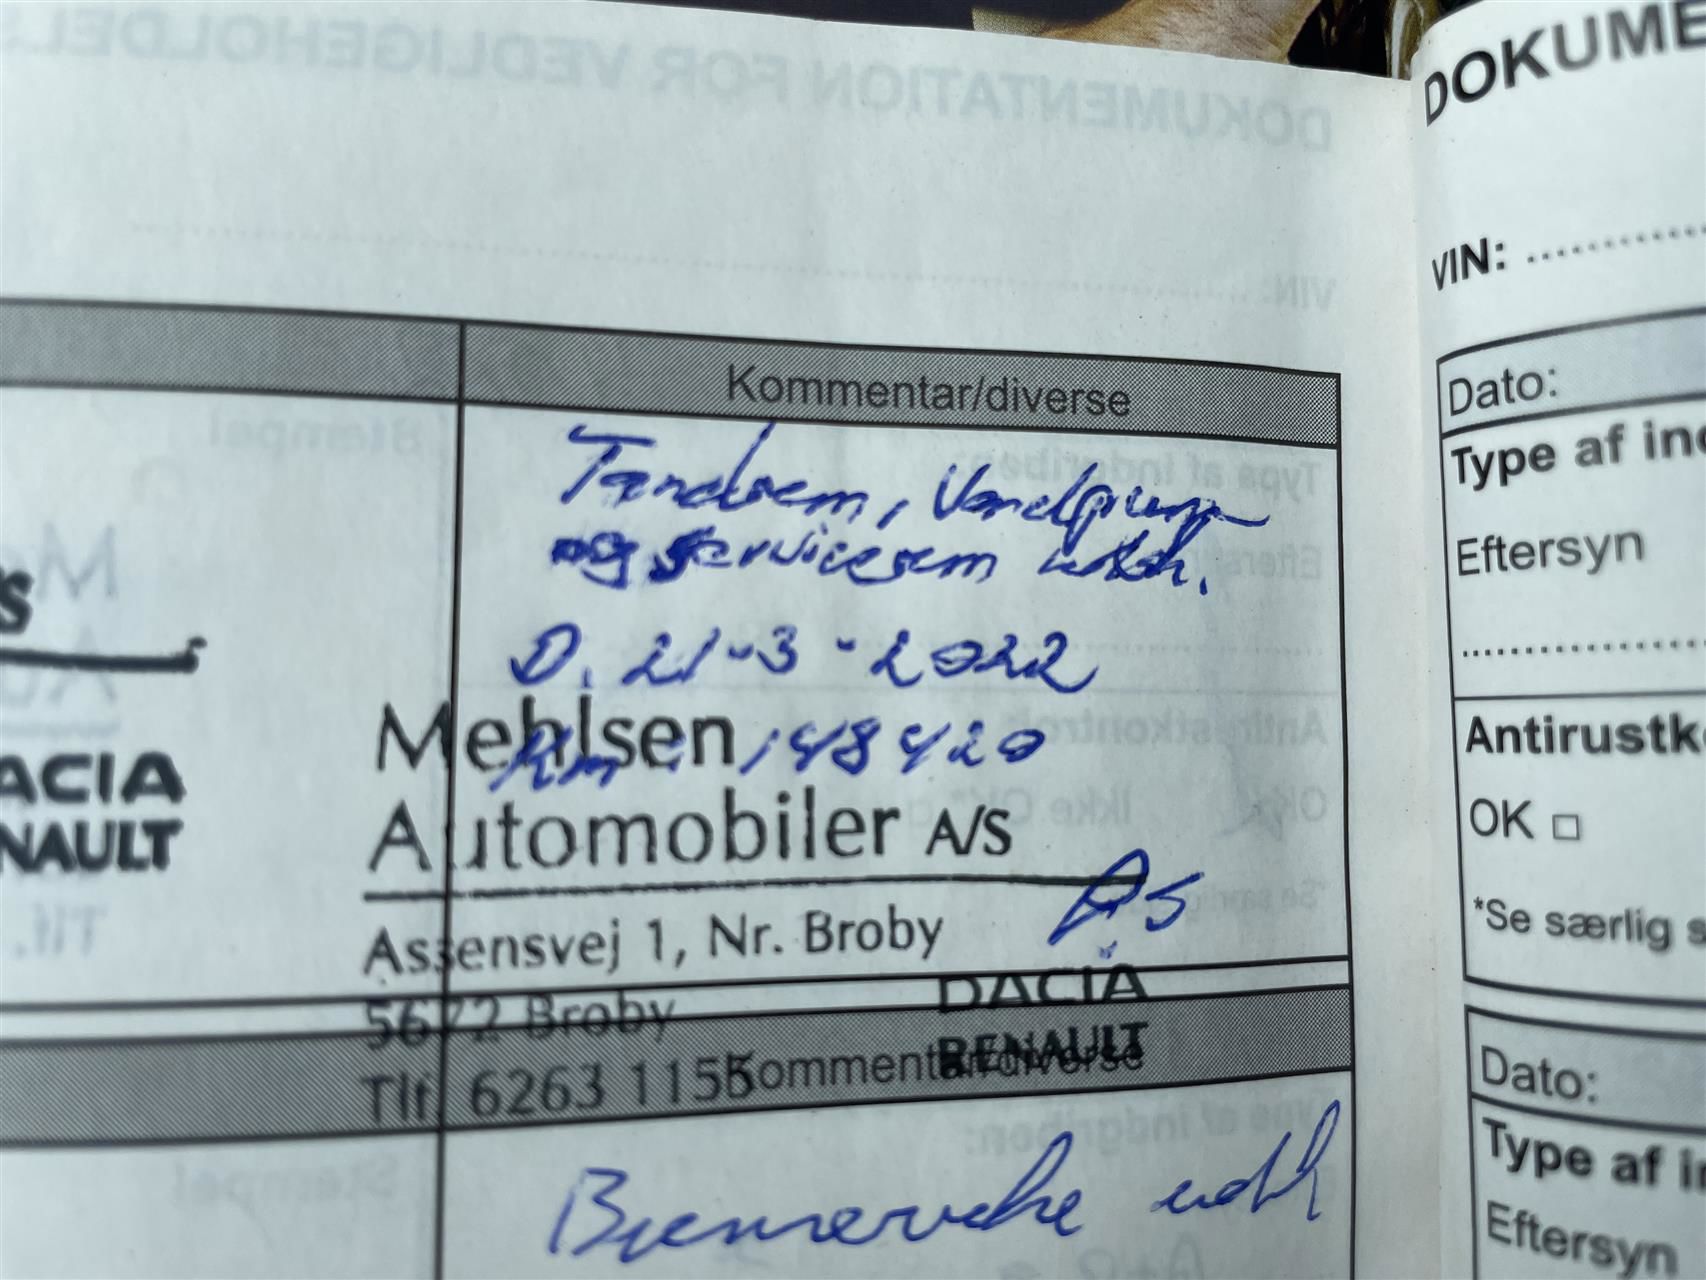 Kommentar/diverse
Tandrem, Vandpump
og serviserem udsk.
D. 21-3-2022
Km: 148420
Mehlsen
Automobiler A/S
Assensvej 1, Nr. Broby
5672 Broby
Tlf. 6263 1155
DACIA
RENAULT
S
ACIA
NAULT
Kommentar/diverse
Bremsevæske udsk
DOKUME
VIN:
Dato:
Type af in
Eftersyn
Antirustk
OK
*Se særlig s
Dato:
Type af i
Eftersyn